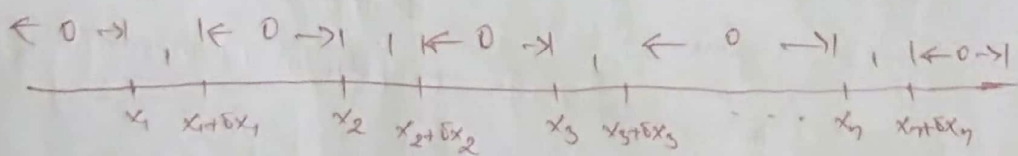 ← 0 →| , |← 0 →| | |← 0 →| , ← 0 →| , |←0→|
x₁ x₁+δx₁ x₂ x₂+δx₂ x₃ x₃+δx₃ . . . xₙ xₙ+δxₙ